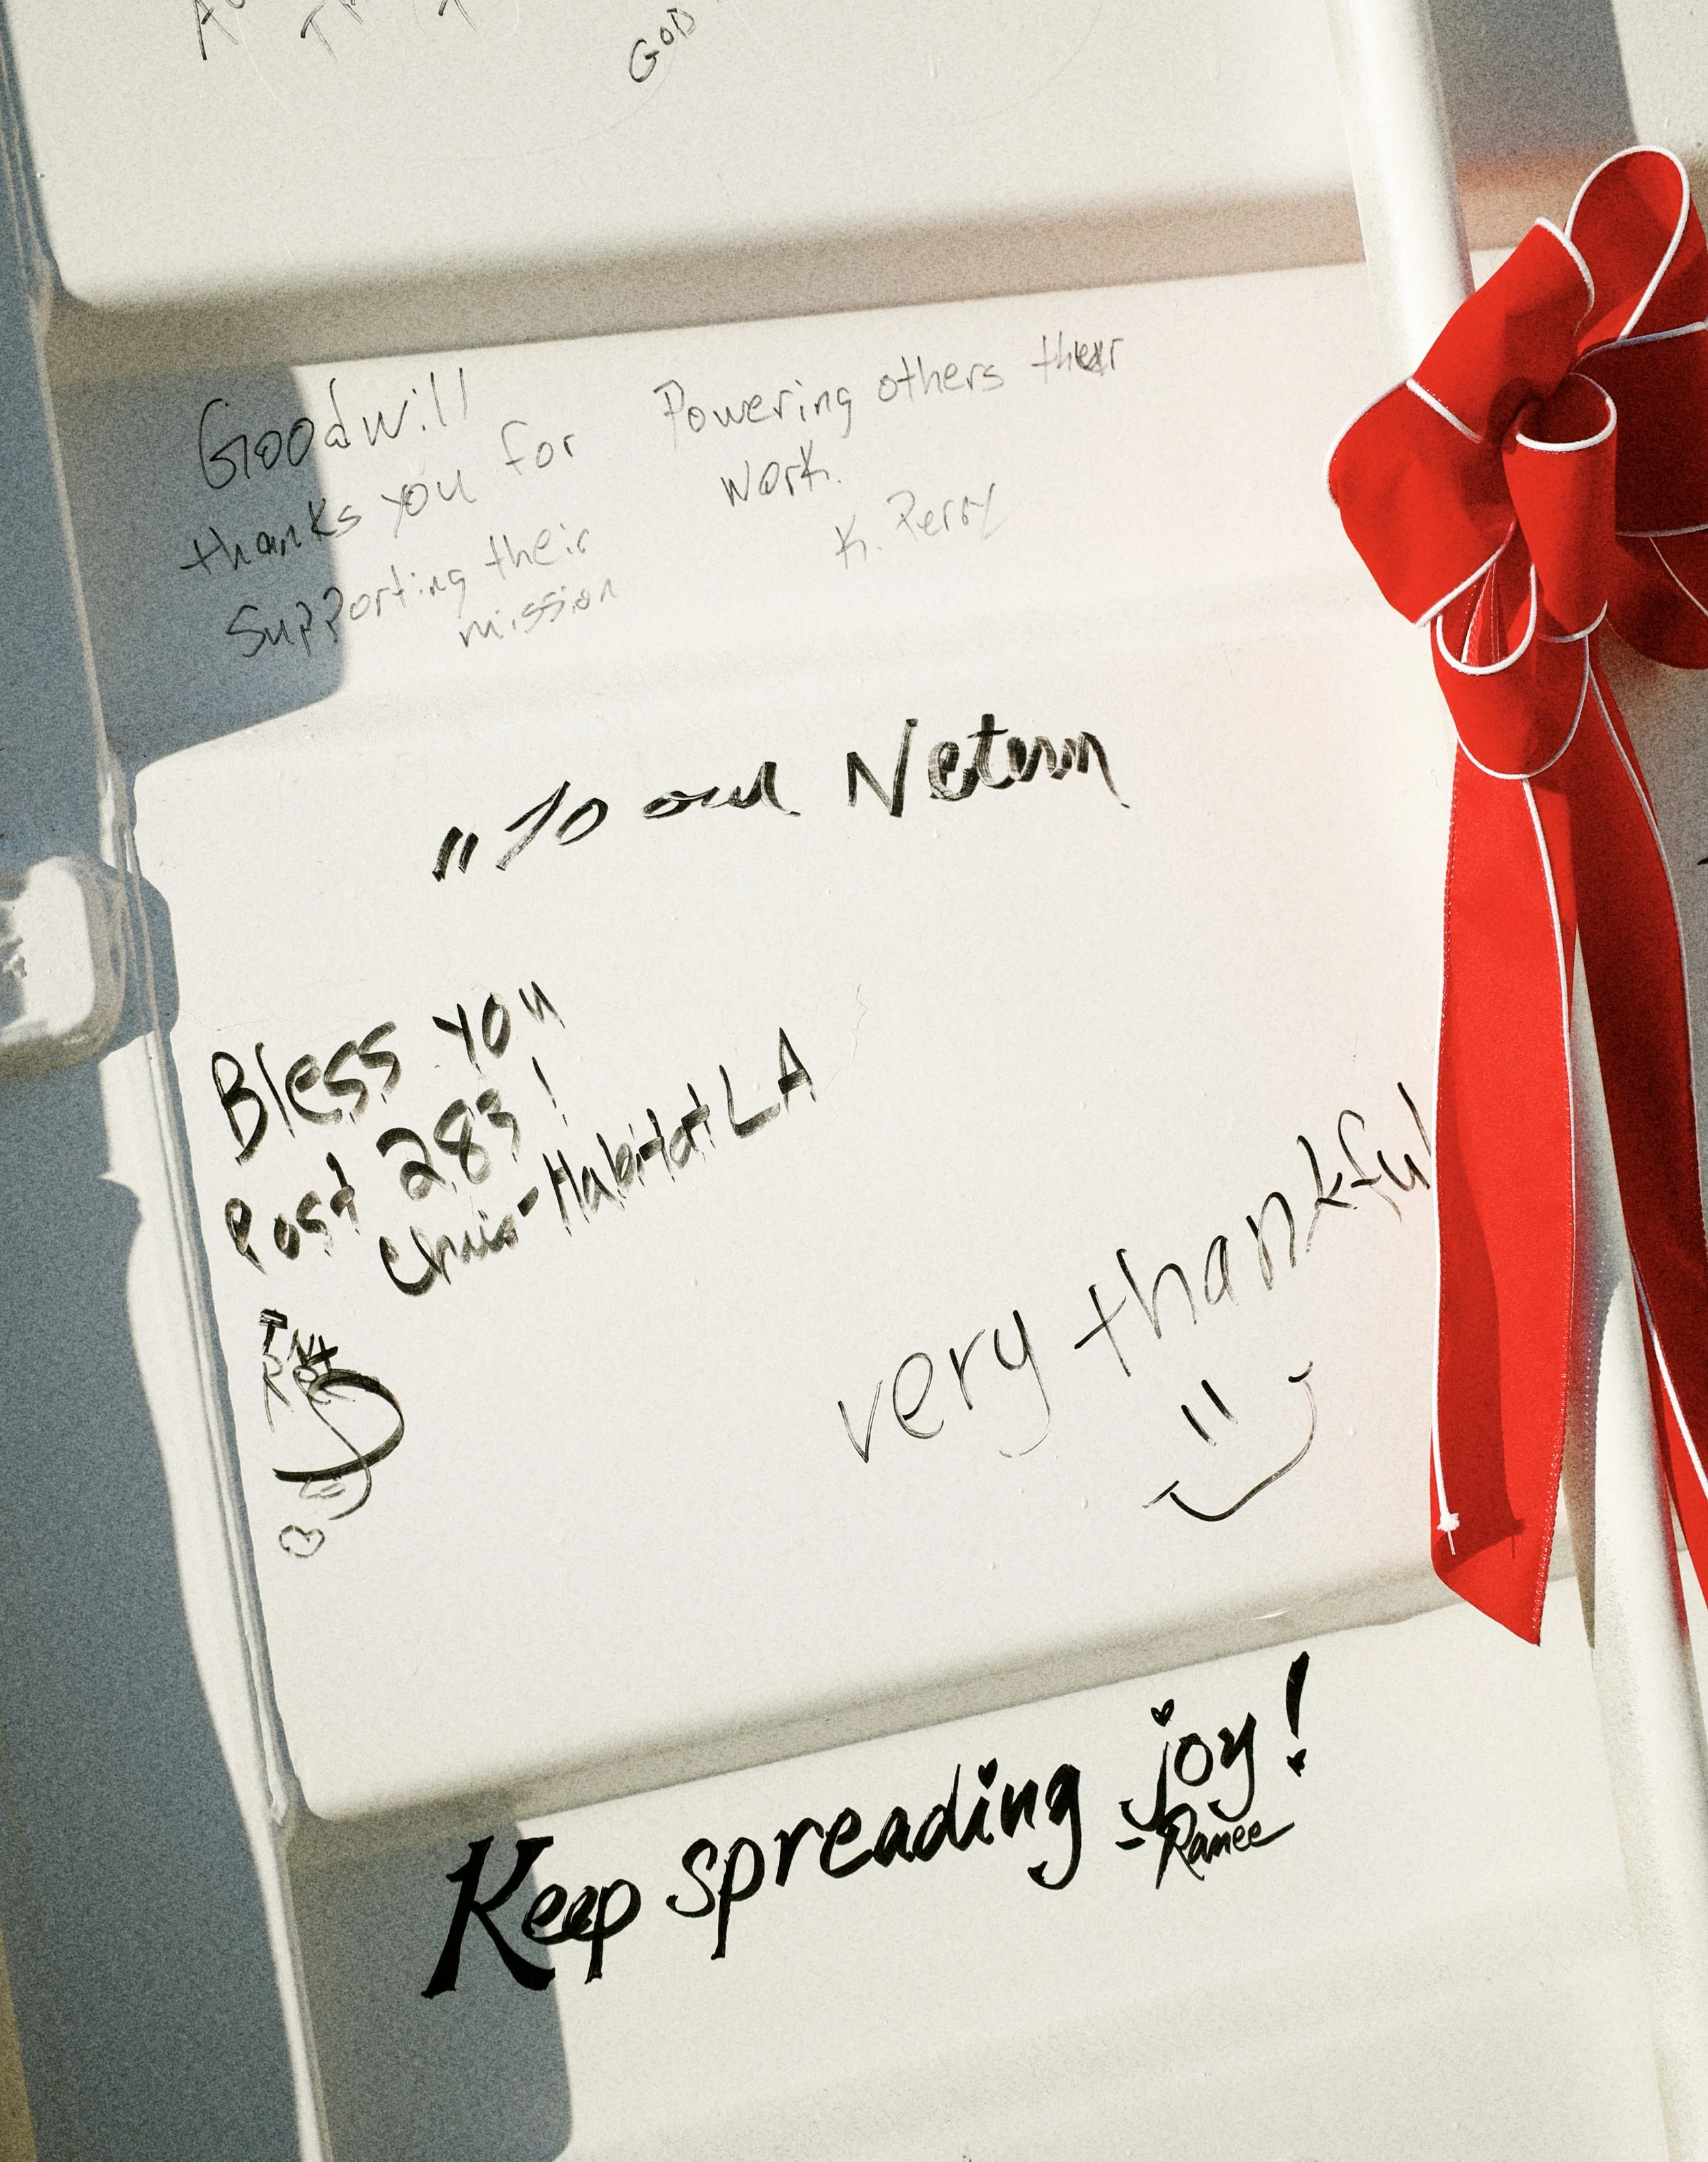 GOD
Goodwill
thanks you for
Supporting their
mission
Powering others
work.
K. Perry
"To our
Bless you
Post 283!
Chris-Habitat LA
very thankful
Keep spreading joy!
-Ranee